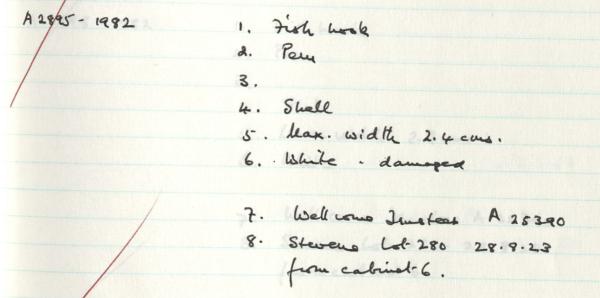 A 2895 - 1982 1. Fish hook
2. Peru
3.
4. Shell
5. Max. width 2.4 cms.
6. White - damaged
7. Wellcome Trustees A 25390
8. Stevens Lot 280 28.8.23
from cabinet 6.